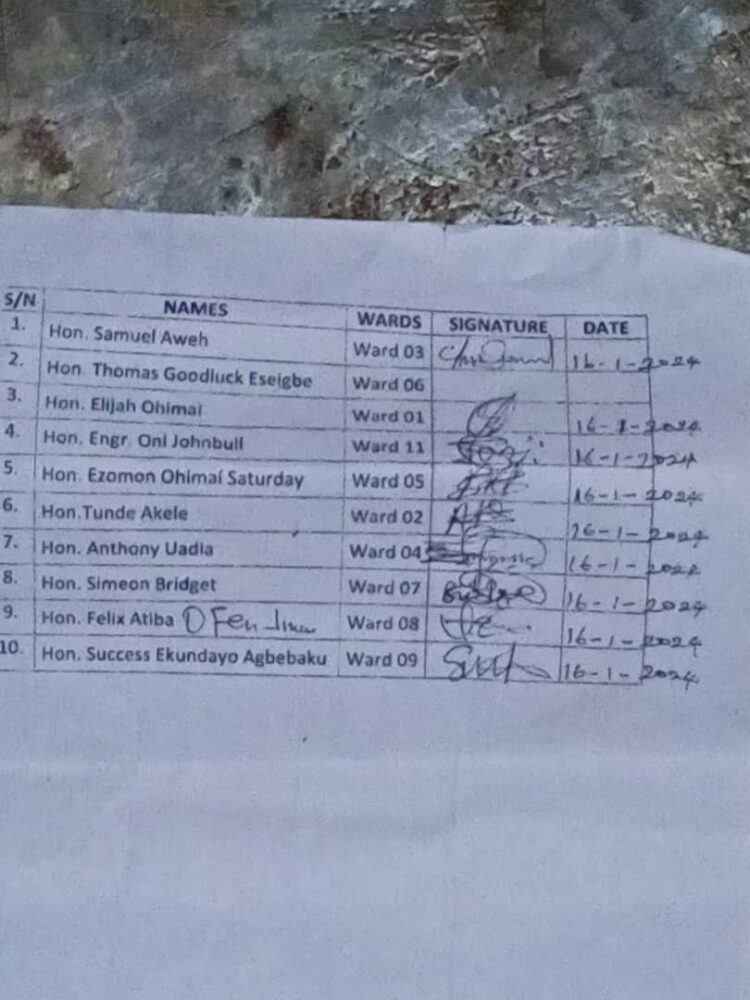 S/N NAMES WARDS SIGNATURE DATE
1. Hon. Samuel Aweh Ward 03 16-1-2024
2. Hon. Thomas Goodluck Eseigbe Ward 06
3. Hon. Elijah Ohimai Ward 01 16-1-2024
4. Hon. Engr. Oni Johnbull Ward 11 16-1-2024
5. Hon. Ezomon Ohimai Saturday Ward 05 16-1-2024
6. Hon.Tunde Akele Ward 02 16-1-2024
7. Hon. Anthony Uadia Ward 04 16-1-2024
8. Hon. Simeon Bridget Ward 07 16-1-2024
9. Hon. Felix Atiba Ward 08 16-1-2024
10. Hon. Success Ekundayo Agbebaku Ward 09 16-1-2024